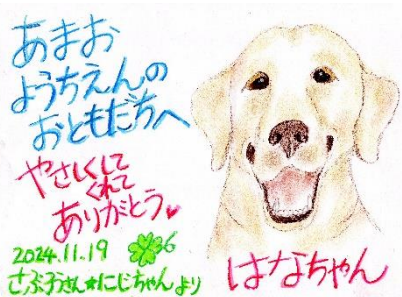 あまお
ようちえんの
おともだちへ
やさしくして
くれて
ありがとう♥
2024.11.19
さぶ子さん★にじちゃんより
はなちゃん